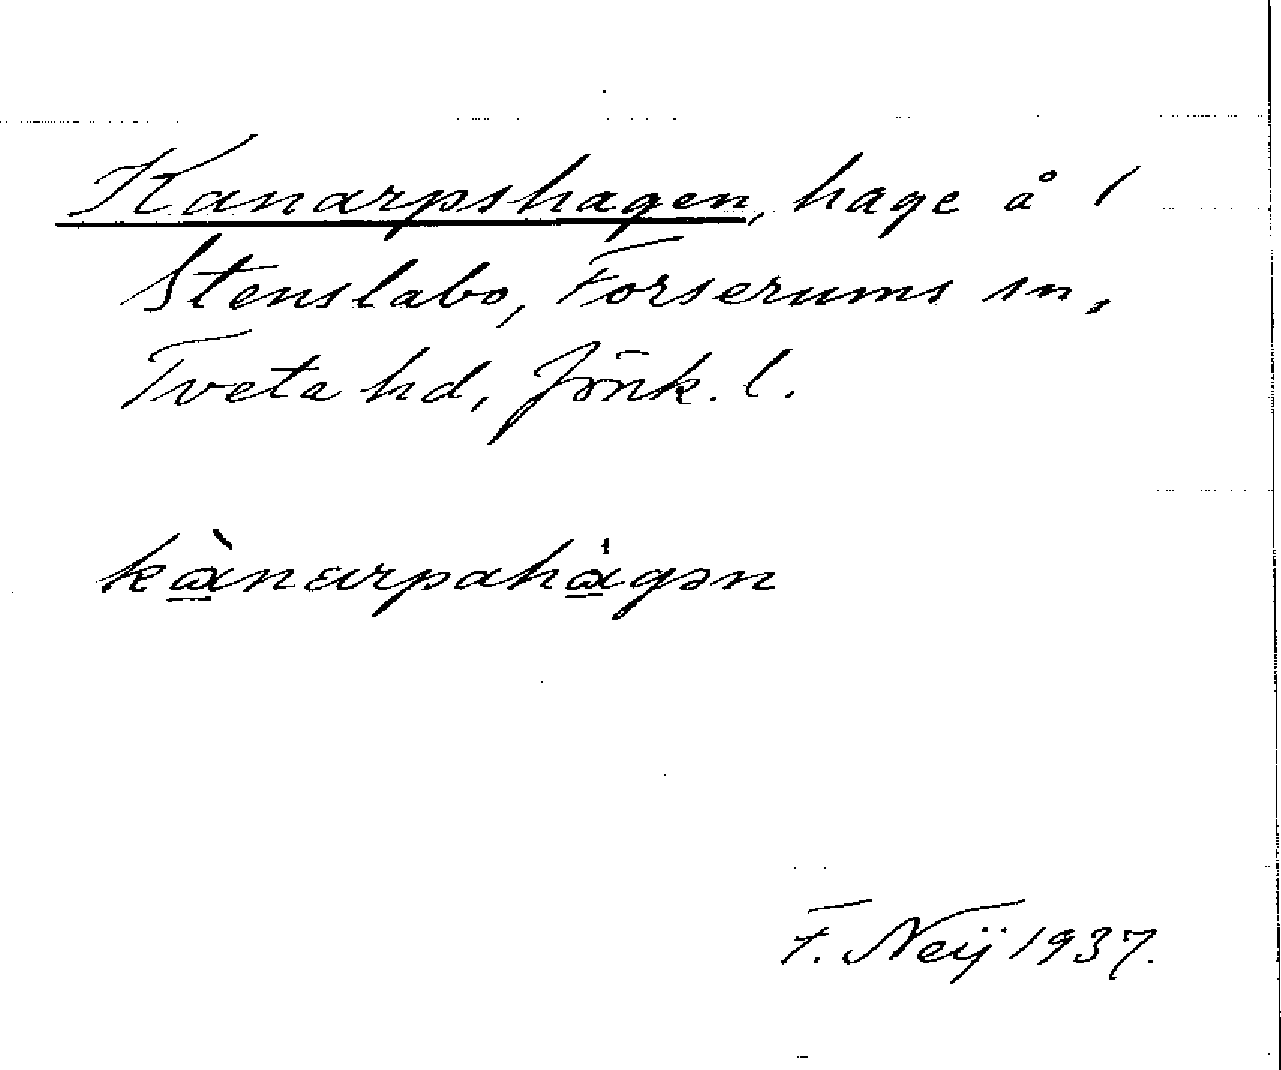 Kanarpshagen, hage å 1
Stenslabo, Forserums sn,
Tveta hd, Jönk. l.
kànarpahágən
F. Neij 1937.